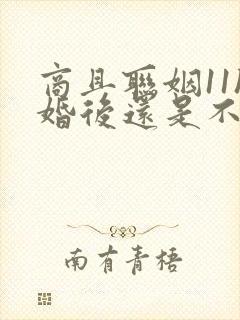 商且聯姻11
婚後還是不
南有青梧